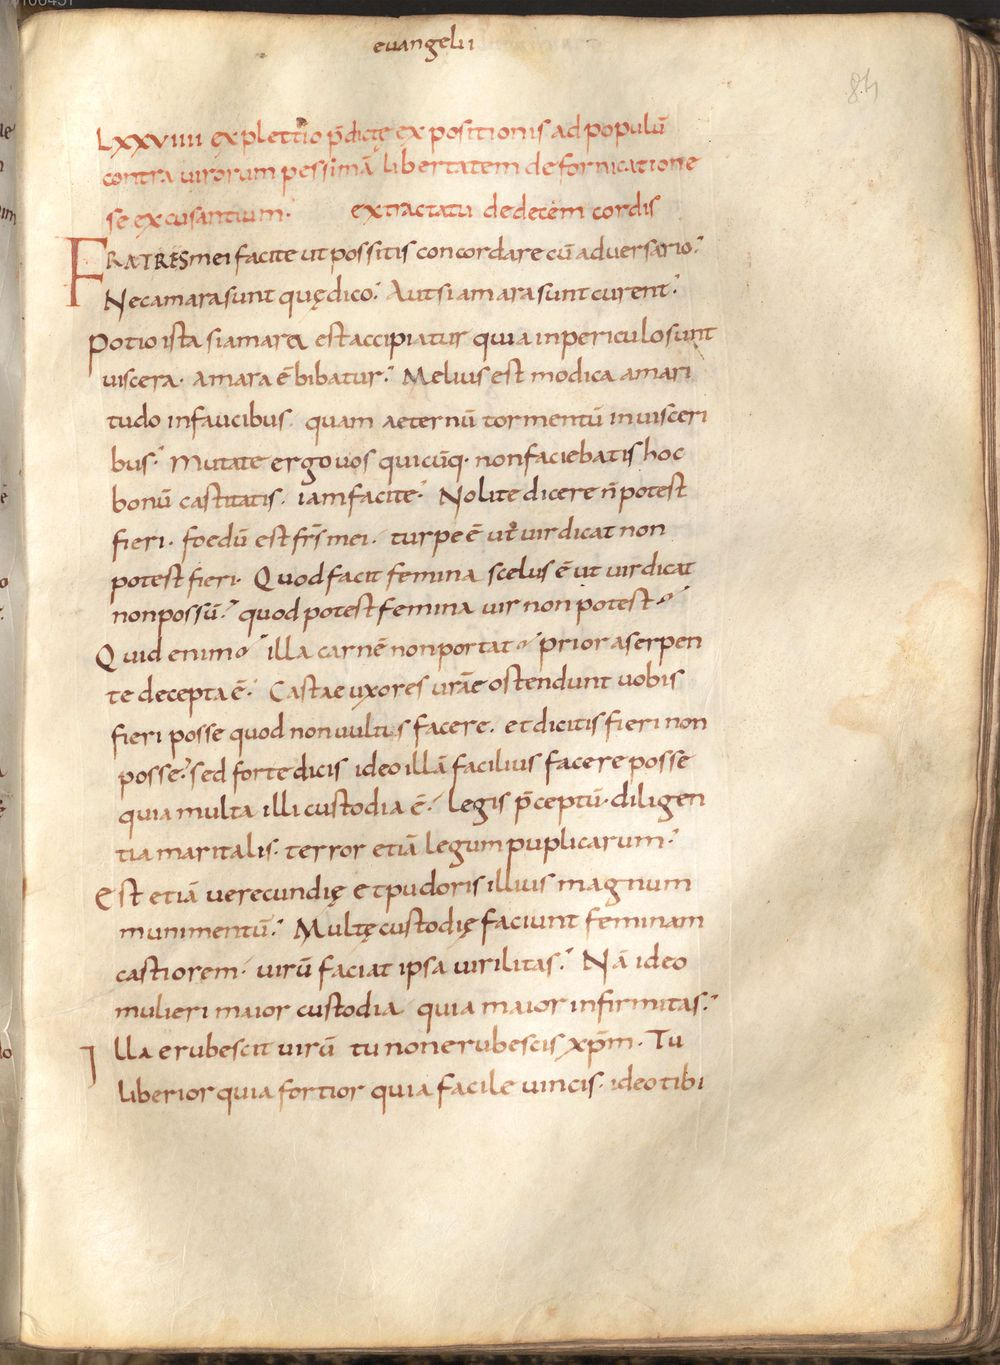 evangelii
84
LXXVIIII explettio p̄dictę expositionis ad populū
contra virorum pessimā libertatem de fornicatione
se excusantium. ex tractatu de decem cordis
FRATRES mei facite ut possitis concordare cū adversario.
Nec amara sunt quę dico. Aut si amara sunt curent.
Potio ista si amara est accipiatur quia in periculo sunt
viscera. amara ē bibatur. Melius est modica amari
tudo in faucibus. quam aeternū tormentū in visceri
bus. Mutate ergo vos quicūq. non faciebatis hoc
bonū castitatis. iam facite. Nolite dicere n̄ potest
fieri. foedū est frs̄ mei. turpe ē ut vir dicat non
potest fieri. Quod facit femina scelus ē ut vir dicat
non possū. quod potest femina vir non potest
Quid enim illa carnē non portat prior a serpen
te decepta ē. Castae uxores vrāe ostendunt vobis
fieri posse quod non vultis facere. et dicitis fieri non
posse. sed forte dicis ideo illā facilius facere posse
quia multa illi custodia ē. Legis p̄ceptū. diligen
tia maritalis. terror etiā legum puplicarum.
Est etiā verecundię et pudoris illius magnum
munimentū. Multę custodię faciunt feminam
castiorem. virū faciat ipsa virilitas. Nā ideo
mulieri maior custodia quia maior infirmitas.
Illa erubescit virū tu non erubescis xp̄m. Tu
liberior quia fortior quia facile vincis. ideo tibi